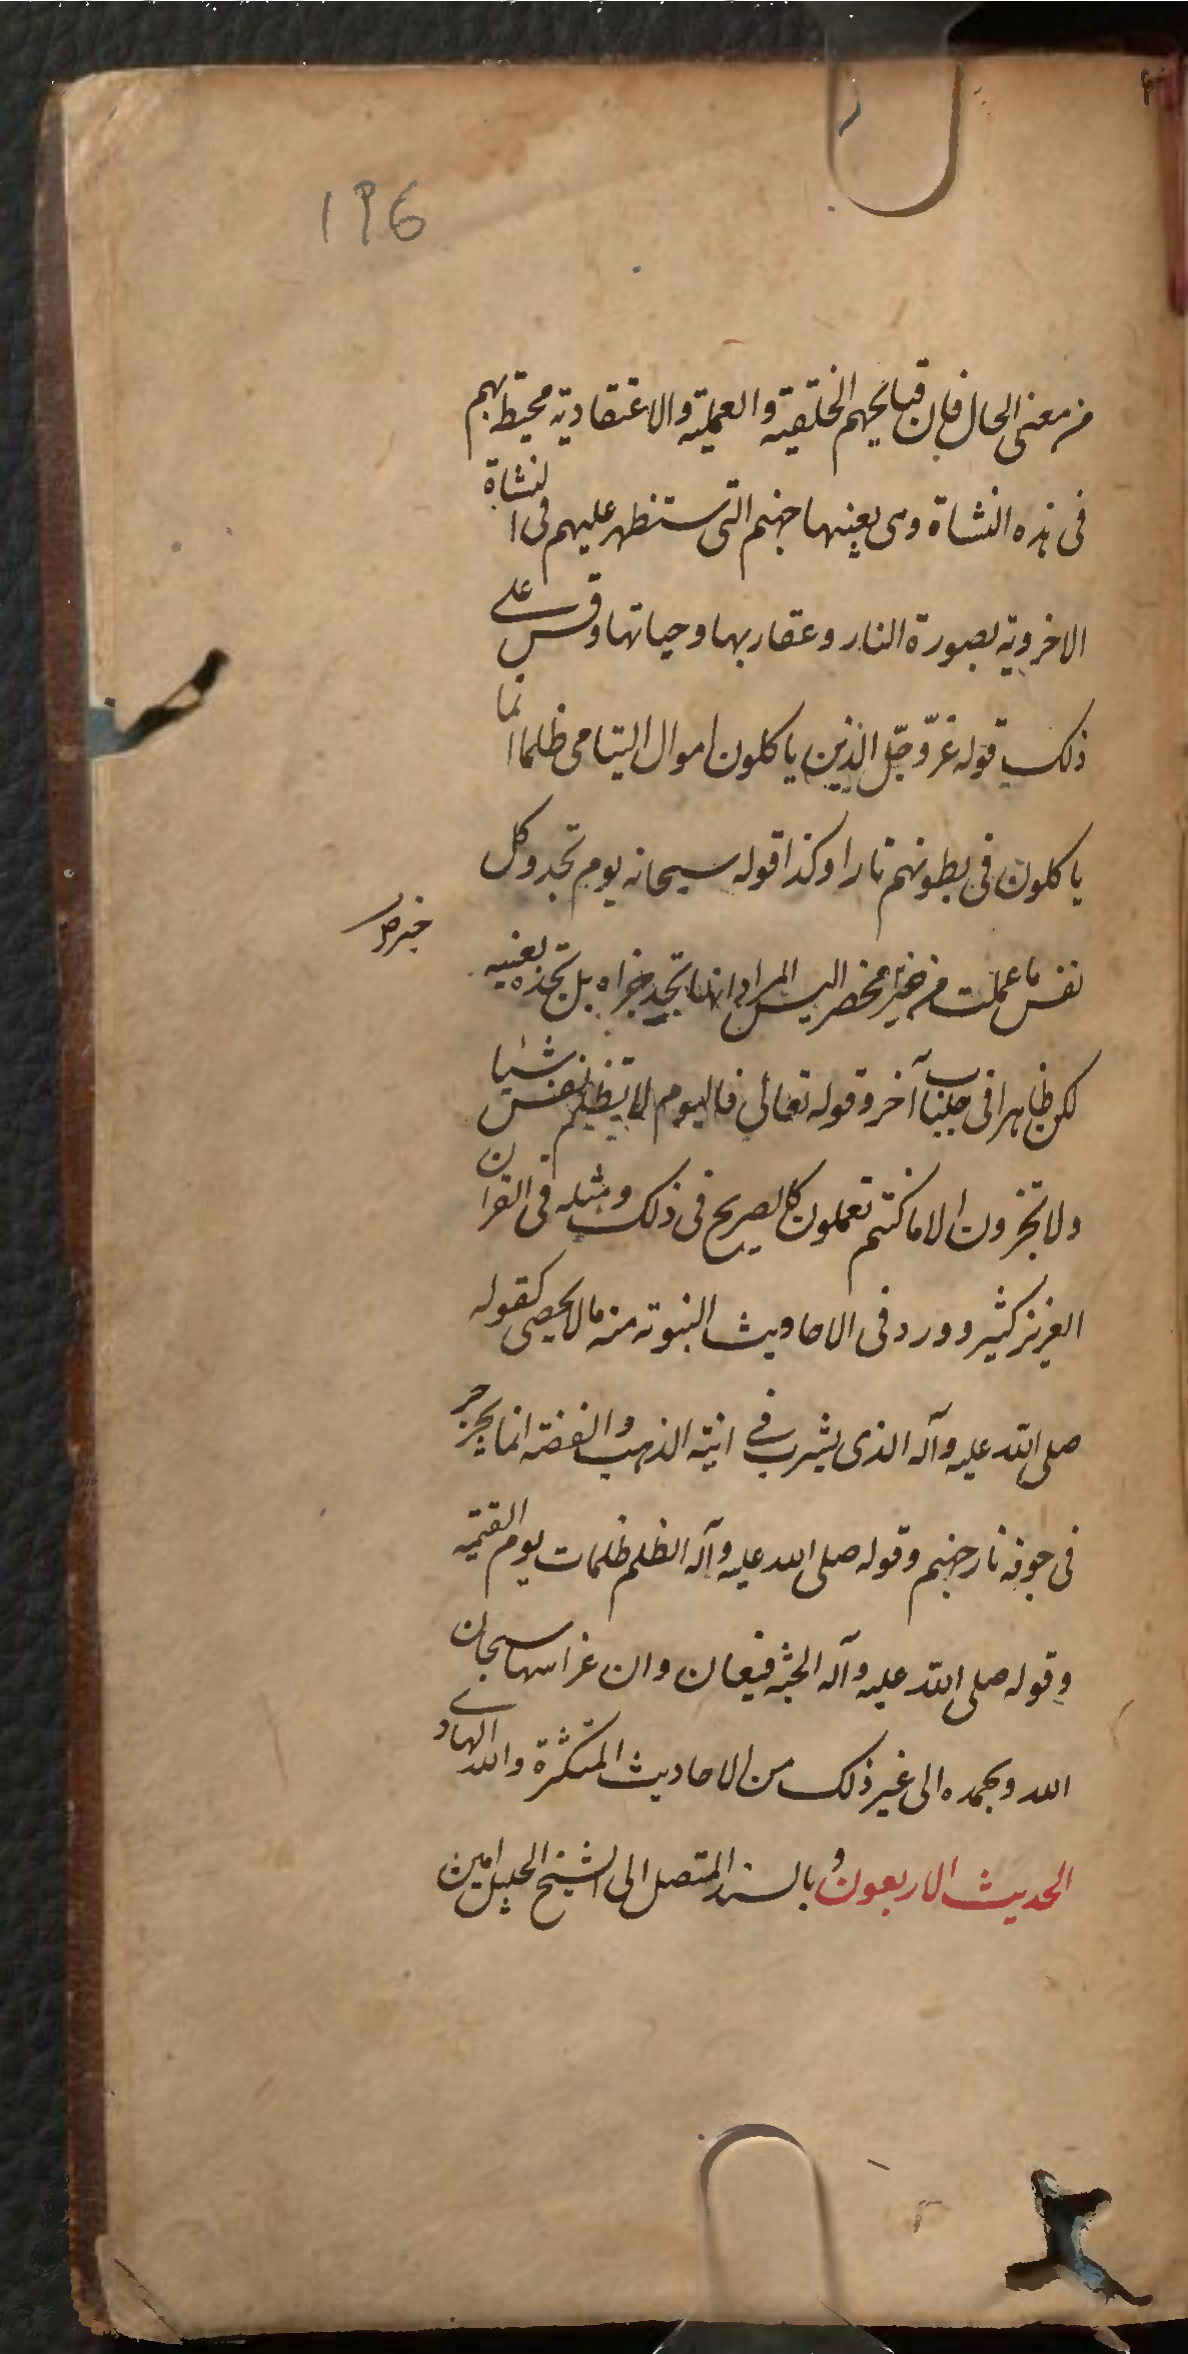 196
من معنى الحال فان قبايحهم الخلقية والعملية والاعتقادية محيطة بهم
فى هذه النشاة وهى بعينها جهنم التى ستظهر عليهم فى النشاة
الاخروية بصورة النار وعقاربها وحياتها وقس على
ذلك قوله عزّ وجلّ الذين ياكلون اموال اليتامى ظلما انما
ياكلون فى بطونهم نارا وكذا قوله سبحانه يوم تجدو كل
نفس ما عملت من خير محضر اليس المراد انها تجد جزاه بل تجده بعينه
لكن ظاهرا فى جلباب آخر وقوله تعالى فاليوم لا تظلم نفس شيا
ولا تجزون الا ما كنتم تعملون كالصريح فى ذلك ومثله فى القران
العزيز كثير وورد فى الاحاديث النبوته منه ما لا يحصى كقوله
صلى الله عليه وآله الذى يشرب فى انية الذهب والفضة انما يجرجر
فى جوفه نار جهنم وقوله صلى الله عليه وآله الظلم ظلمات يوم القيمة
وقوله صلى الله عليه وآله الجنة قيعان وان غراسها سبحان
الله وبحمده الى غير ذلك من الاحاديث المتكثرة والله الهادى
الحديث الاربعون وبالسند المتصل الى الشيخ الجليل امين